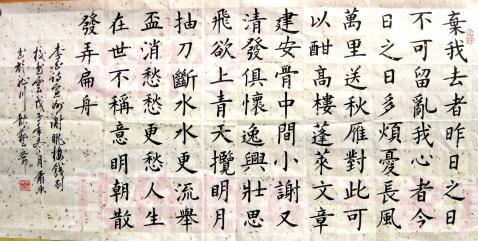 棄我去者昨日之日
不可留亂我心者今
日之日多煩憂長風
萬里送秋雁對此可
以酣高樓蓬萊文章
建安骨中間小謝又
清發俱懷逸興壯思
飛欲上青天攬明月
抽刀斷水水更流舉
盃消愁愁更愁人生
在世不稱意明朝散
發弄扁舟
李白詩宣州謝眺樓餞別
校書雲戊子年六月